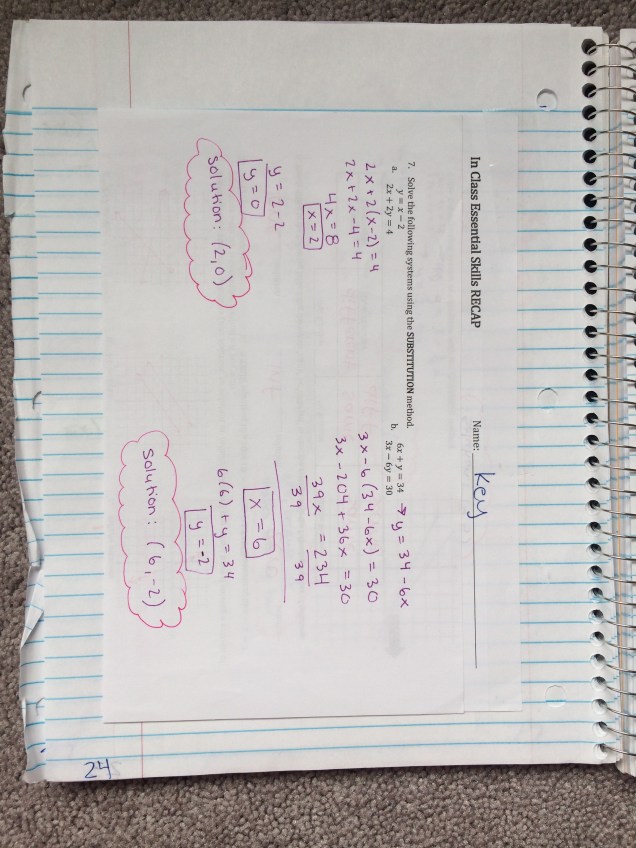 In Class Essential Skills RECAP
Name: Key
7. Solve the following systems using the SUBSTITUTION method.
a. y = x − 2
2x + 2y = 4
2x + 2(x-2) = 4
2x + 2x - 4 = 4
4x = 8
x = 2
y = 2 - 2
y = 0
Solution: (2,0)
b. 6x + y = 34 → y = 34 - 6x
3x − 6y = 30
3x - 6(34 - 6x) = 30
3x - 204 + 36x = 30
39x = 234
39 39
x = 6
6(6) + y = 34
y = -2
Solution: (6, -2)
24